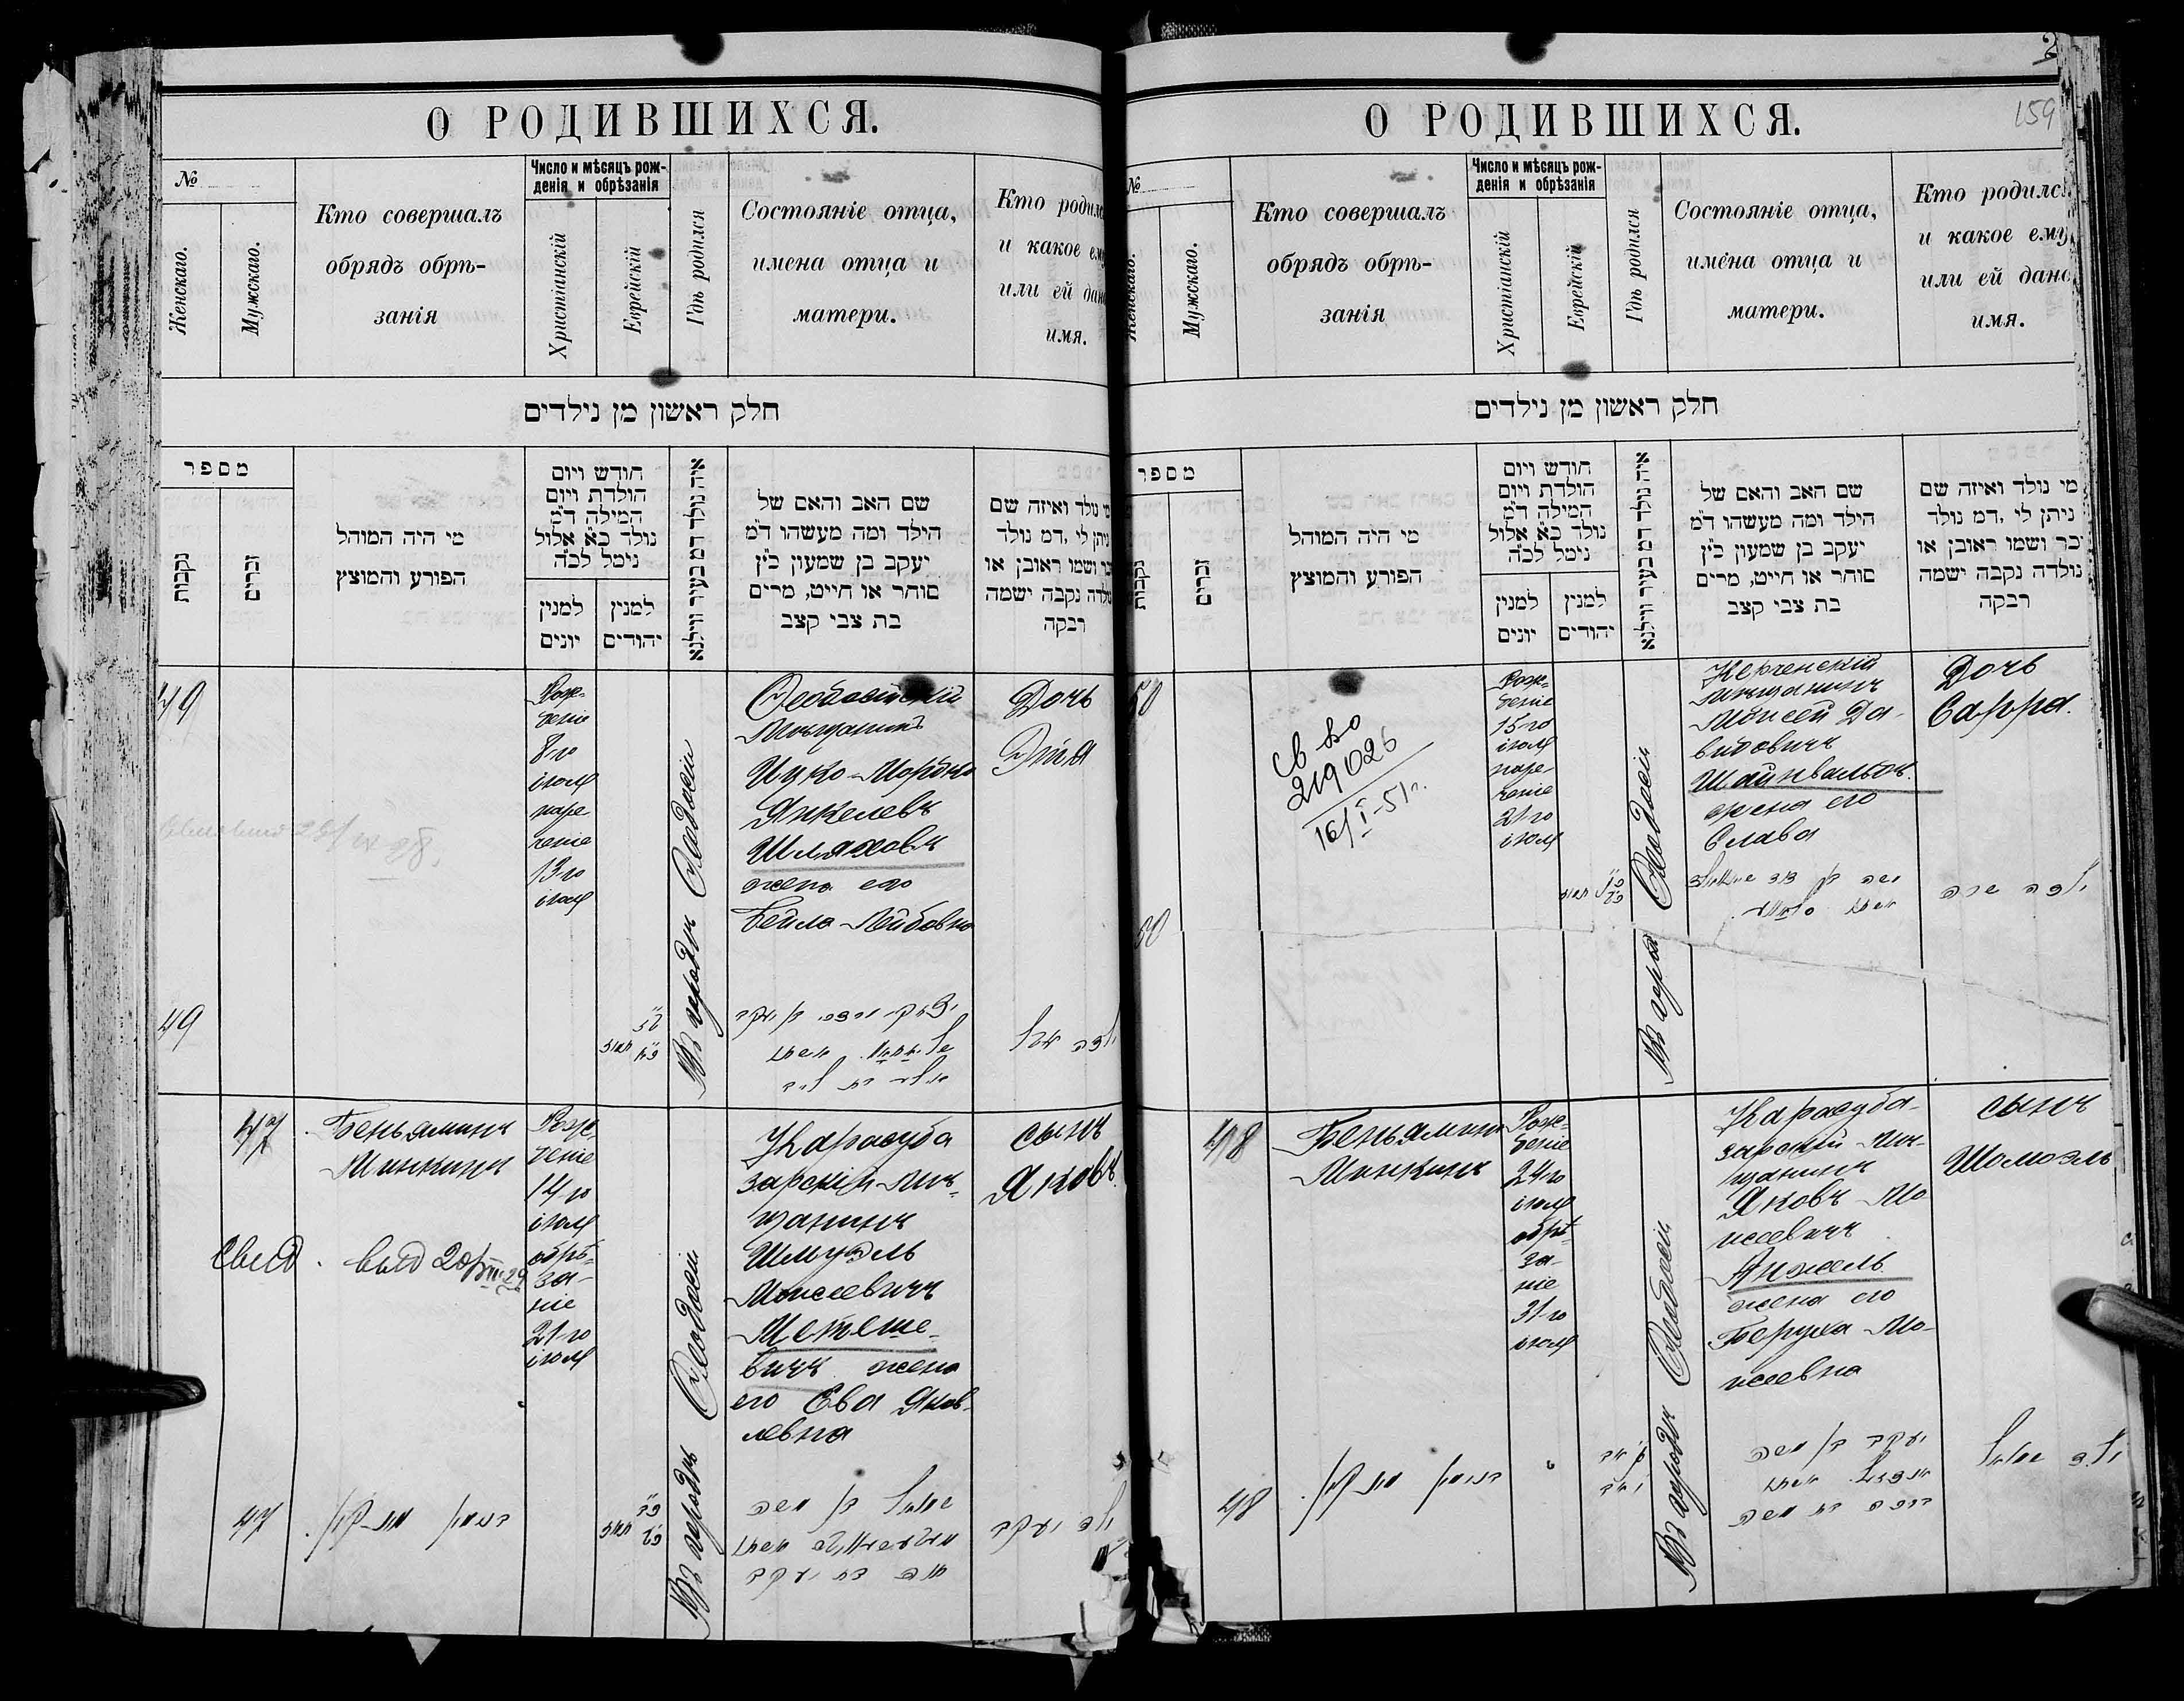 О РОДИВШИХСЯ.
№
Женскаго.
Мужскаго.
Кто совершалъ
обрядъ обрѣ-
занія
Число и мѣсяцъ рож-
денія и обрѣзанія
Христіанскій
Еврейскій
Годъ родился
Состояніе отца,
имена отца и
матери.
Кто родилс
и какое ем
или ей дан
имя.
חלק ראשון מן נילדים
מספר
נקבות
זכרים
מי היה המוהל
הפורע והמוצץ
חודש ויום
הולדת ויום
המילה ד״מ
נולד כ״א אלול
נימל לכ״ה
למנין
יונים
למנין
יהודים
איה נולד דמ בעיר ווילנא
שם האב והאם של
הילד ומה מעשהו ד״מ
יעקב בן שמעון כ״ץ
סוחר או חייט, מרים
בת צבי קצב
מי נולד ואיזה שם
ניתן לי ,דמ נולד
זכר ושמו ראובן או
נולדה נקבה ישמה
רבקה
49
Рож-
деніе
8-го
іюля
наре
ченіе
13-го
іюля
Въ городѣ Ѳеодосіи
Ѳеодосійскій
Мѣщанинъ
Ицко-Мордко
Янкелевъ
Шляховъ
жена его
Бейла-Лейбовна
Дочь
Этля
49
47
Беньяминъ
Минкинъ
Рож-
деніе
14-го
іюля
обрѣ-
за-
ніе
21-го
іюля
Въ городѣ Ѳеодосіи
Карасуба
зарскій мѣ-
щанинъ
Шмуэль
Моисеевичъ
вичъ жена
его Ева Яков-
левна
сынъ
Яковъ.
47
שמואל בן משה
ילד יעקב
О РОДИВШИХСЯ.
159
№
Женскаго.
Мужскаго.
Кто совершалъ
обрядъ обрѣ-
занія
Число и мѣсяцъ рож-
денія и обрѣзанія
Христіанскій
Еврейскій
Годъ родился
Состояніе отца,
имена отца и
матери.
Кто родилс
и какое ему
или ей дано
имя.
חלק ראשון מן נילדים
מספר
נקבות
זכרים
מי היה המוהל
הפורע והמוצץ
חודש ויום
הולדת ויום
המילה ד״מ
נולד כ״א אלול
נימל לכ״ה
למנין
יונים
למנין
יהודים
איה נולד דמ בעיר ווילנא
שם האב והאם של
הילד ומה מעשהו ד״מ
יעקב בן שמעון כ״ץ
סוחר או חייט, מרים
בת צבי קצב
מי נולד ואיזה שם
ניתן לי ,דמ נולד
זכר ושמו ראובן או
נולדה נקבה ישמה
רבקה
50
св во
219026
16/I-51г.
Рож-
деніе
15-го
іюля
наре-
ченіе
21-го
іюля
Въ городѣ Ѳеодосіи
Керченскій
мѣщанинъ
Мойсей Да-
видовичъ
Шайнвальдъ
жена его
Слава
Дочь
Сарра.
ילדה שרה
50
48
Беньяминъ
Минкинъ
Рож-
деніе
24-го
іюля
обрѣ-
за-
ніе
31-го
іюля
Въ городѣ Ѳеодосіи
Карасуба-
зарскій мѣ-
щанинъ
Яковъ Мо
исеевичъ
Анжель
жена его
Беруха Мо-
исеевна
сынъ
Шомоэль
48
יעקב בן משה
ילד שמואל